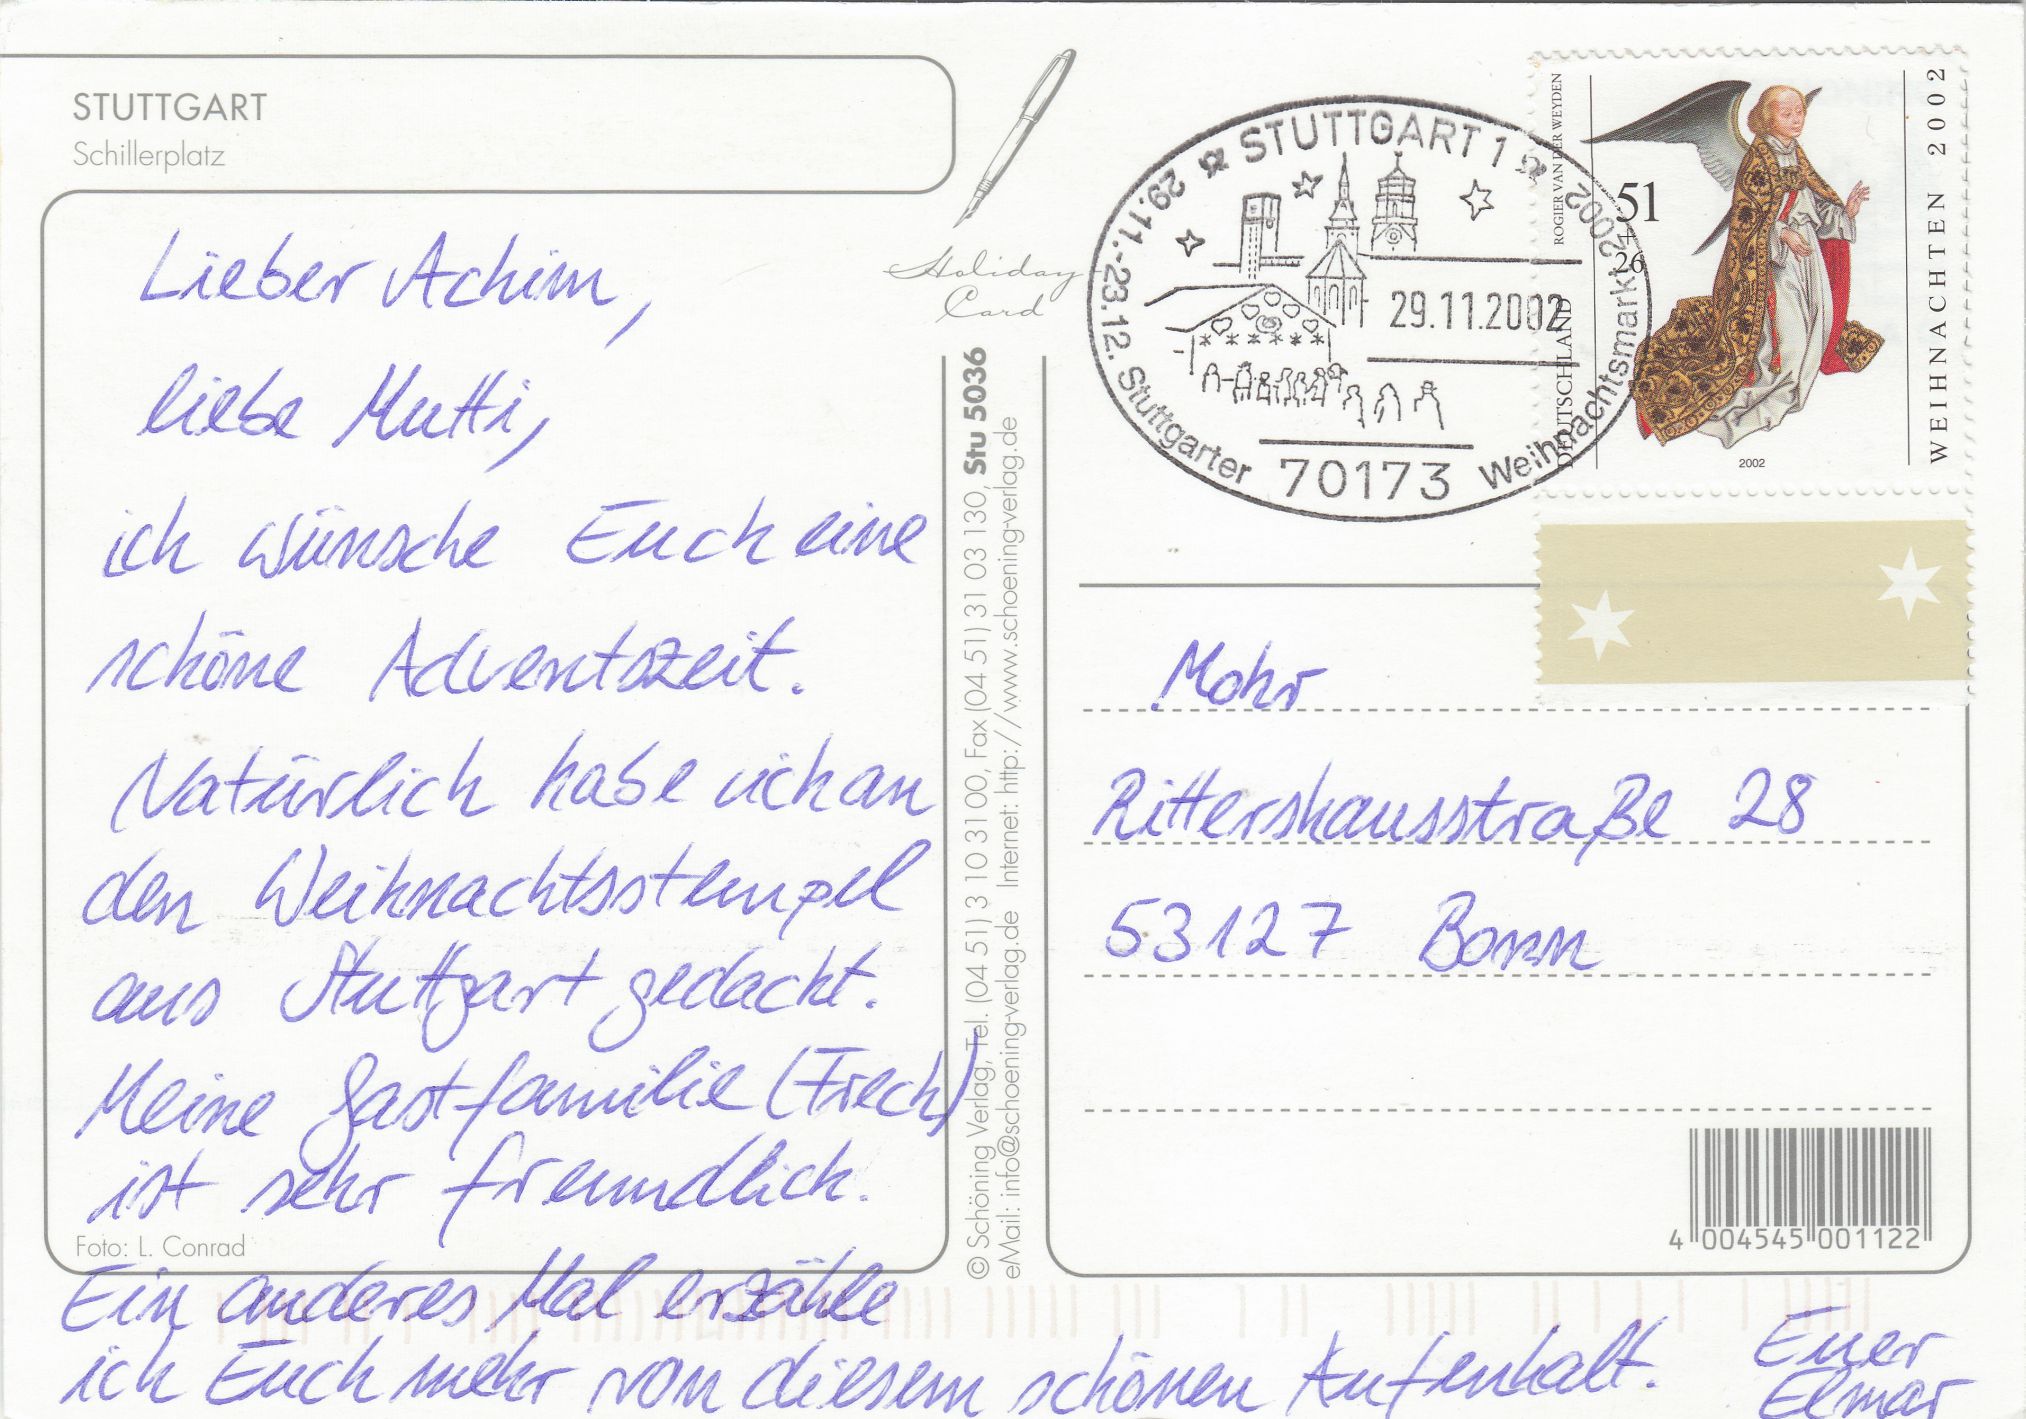 STUTTGART
Schillerplatz
Lieber Achim,
liebe Mutti,
ich wünsche Euch eine
schöne Adventszeit.
Natürlich habe ich an
den Weihnachtsstempel
aus Stuttgart gedacht.
Meine Gastfamilie (Frech)
ist sehr freundlich.
Foto: L. Conrad
Ein anderes Mal erzähle
ich Euch mehr von diesem schönen Aufenhalt.
Euer
Elmar
Holiday
Card
© Schöning Verlag, Tel. (04 51) 3 10 31 00, Fax (04 51) 31 03 130, Stu 5036
eMail: info@schoening-verlag.de Internet: http://www.schoening-verlag.de
STUTTGART 1
29.11.-23.12. Stuttgarter Weihnachtsmarkt 2002
29.11.2002
70173
ROGIER VAN DER WEYDEN
DEUTSCHLAND
51
+
26
WEIHNACHTEN 2002
2002
Mohr
Rittershausstraße 28
53127 Bonn
4 004545 001122